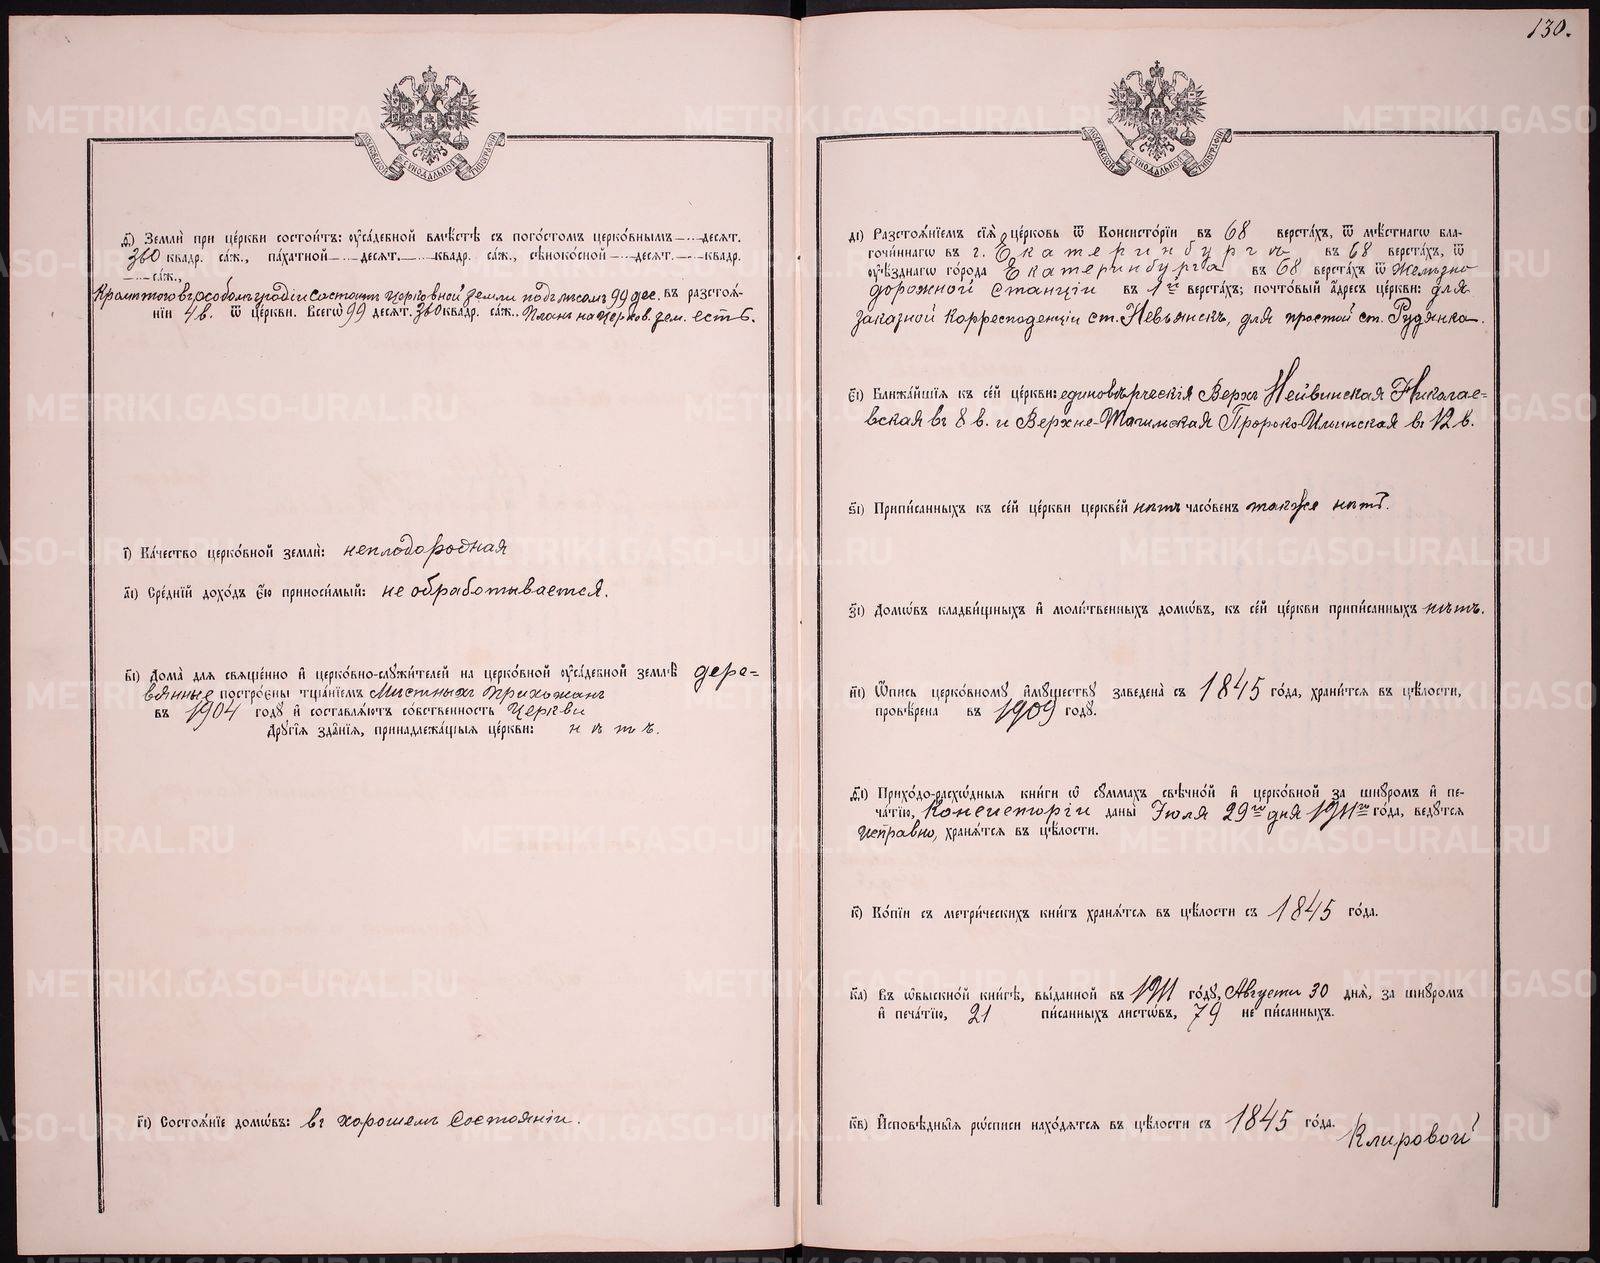 130.
МОСКОВСКОЙ СѴНОДАЛЬНОЙ ТИПОГРАФІИ
МОСКОВСКОЙ СѴНОДАЛЬНОЙ ТИПОГРАФІИ
ѳ҃) Землѝ при це́ркви состои́тъ: ᲂу҆са́дебной вмѣ́стѣ съ пого́стомъ церко́внымъ — десят.
360 квадр. са́ж., па́хатной — десят. — квадр. са́ж., сѣноко́сной — десят. — квадр.
— са́ж.,
Кромѣ того въ особомъ угодіи состоитъ церковной земли подъ лѣсомъ 99 дес. въ разстоѧ́-
нїи 4 в. ѿ це́ркви. Всегѡ̀ 99 десят. 360 квадр. са́ж.. Планъ на церков. зем. есть.
і҃) Ка́чество церко́вной землѝ: неплодородная
а҃і) Сре́днїй дохо́дъ е҆́ю приноси́мый: не обработывается.
в҃і) Дома̀ для свѧще́нно и҆ церко́вно-слꙋжи́телей на церко́вной ᲂу҆са́дебной землѣ̀ дере-
вянные постро́ены тща́нїемъ мѣстныхъ прихожанъ
въ 1904 годꙋ̀ и҆ составлѧ́ютъ со́бственность церкви
Дрꙋгі̑ѧ зда̑нїѧ, принадлежа́щыѧ це́ркви: нѣтъ.
г҃і) Состоѧ́нїе домѡ́въ: въ хорошемъ состояніи.
д҃і) Разстоѧ́нїемъ сїѧ̀ це́рковь ѿ Консисто́рїи въ 68 верста́хъ, ѿ мѣ́стнагѡ бла-
гочи́ннагѡ въ г. Екатеринбургѣ въ 68 верста́хъ, ѿ
ᲂу҆ѣ́зднагѡ го́рода Екатеринбурга въ 68 верста́хъ ѿ желѣзно
дорожной станціи въ 1й верста́хъ; почто́вый а҆́дресъ це́ркви: для
заказной корресподенціи ст. Невьянскъ, для простой ст. Рудянка.
є҃і) Ближа́йшїѧ къ се́й це́ркви: единовѣрческія Верхъ Нейвинская Николае-
вская въ 8 в. и Верхне-Тагильская Пророко-Ильинская въ 12 в.
ѕ҃і) Припи́санныхъ къ се́й це́ркви церкве́й нѣтъ часо́венъ также нѣтъ.
з҃і) Домѡ́въ кладби́щныхъ и҆ моли́твенныхъ домѡ́въ, къ се́й це́ркви припи́санныхъ нѣтъ.
и҃і) Ѻ҆́пись церко́вномꙋ и҆мꙋ́ществꙋ заведена̀ съ 1845 го́да, храни́тсѧ въ цѣ́лости,
провѣ́рена въ 1909 годꙋ̀.
ѳ҃і) Прихо́до-расхѡ́дныѧ кни́ги ѡ҆ сꙋ́ммахъ свѣчно́й и҆ церко́вной за шнꙋро́мъ и҆ пе-
ча́тїю, Консисторіи даны̀ Іюля 29го дня 1911го го́да, ведꙋ́тсѧ
исправно, хранѧ́тсѧ въ цѣ́лости.
к҃) Ко́пїи съ метри́ческихъ кни́гъ хранѧ́тсѧ въ цѣ́лости съ 1845 го́да.
к҃а) Въ ѡ҆́быскной кни́гѣ, вы́данной въ 1911 годꙋ̀, Августа 30 днѧ̀, за шнꙋро́мъ
и҆ печа́тїю, 21 пи́санныхъ листѡ́въ, 79 не пи́санныхъ.
к҃в) И҆сповѣ́дныѧ рѡ́списи нахо́дѧтсѧ въ цѣ́лости съ 1845 го́да.
Клировой
METRIKI.GASO-URAL.RU